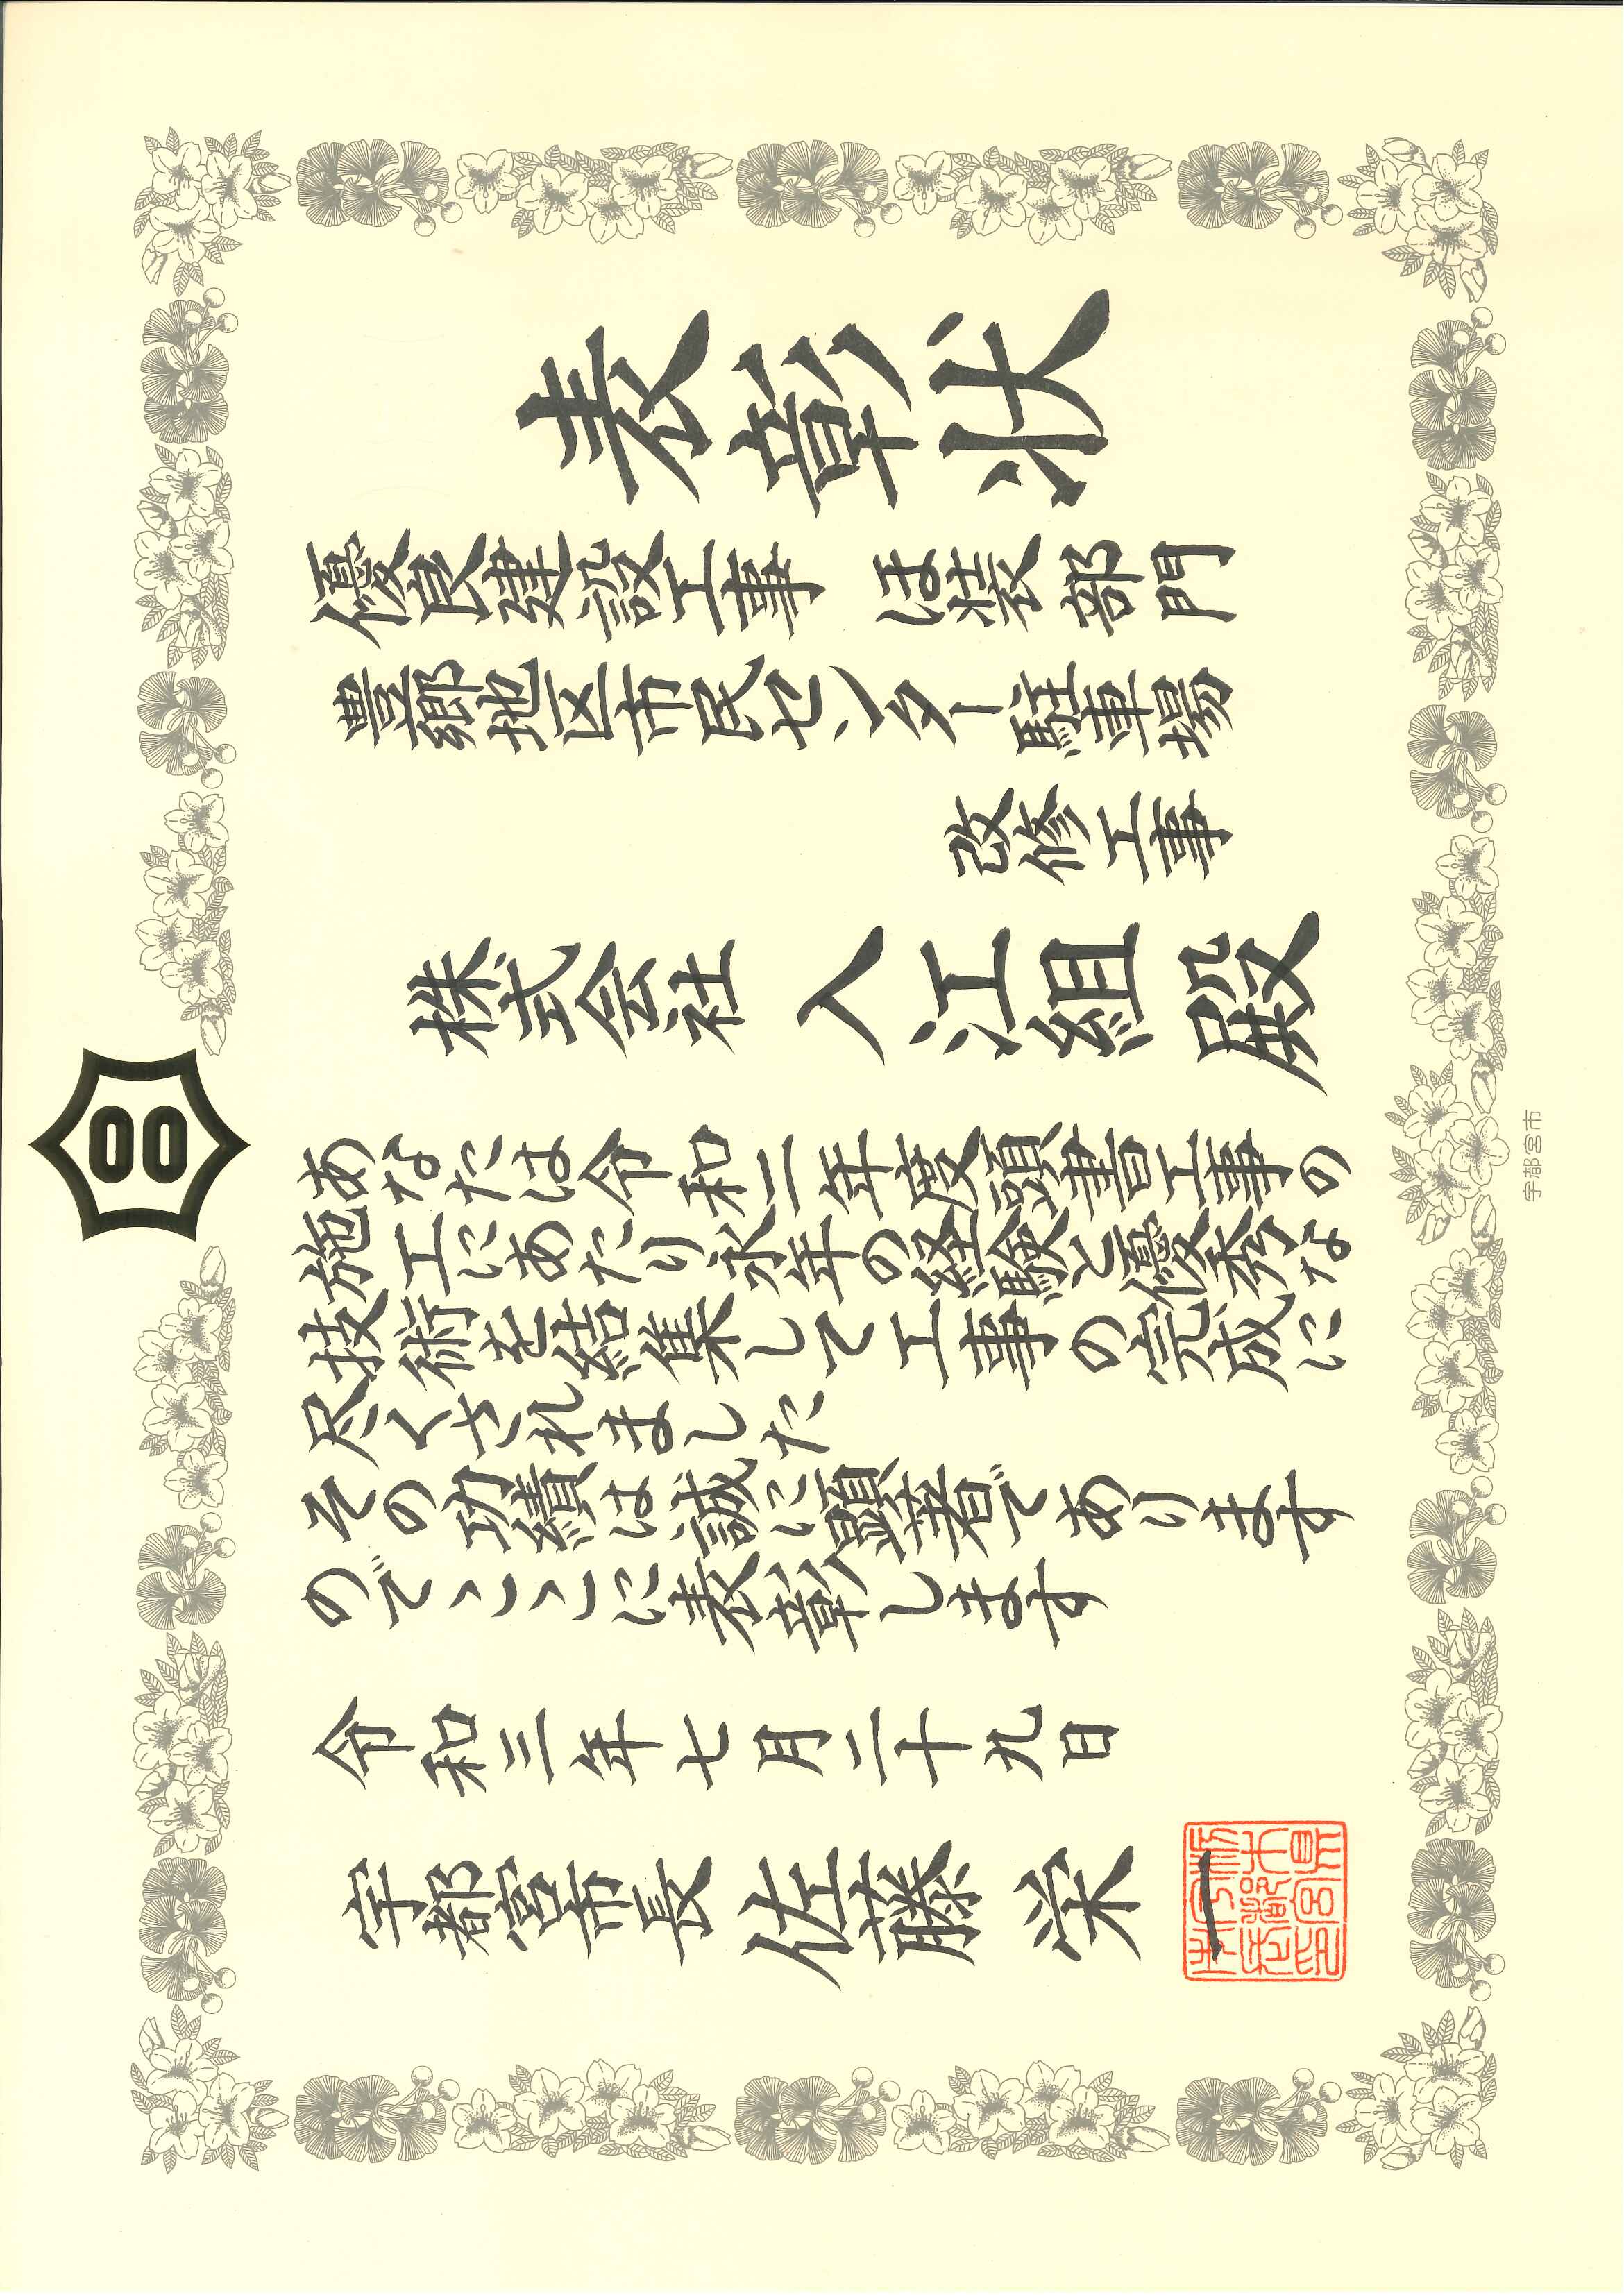 表彰状
優良建設工事 ほ装部門
豊郷地区市民センター駐車場
改修工事
株式会社 入江組 殿
あなたは令和二年度頭書工事の
施工にあたり永年の経験と優秀な
技術を結集して工事の完成に
尽くされました
その功績は誠に顕著であります
のでここに表彰します
令和三年七月二十九日
宇都宮市長 佐藤栄一
宇都宮市